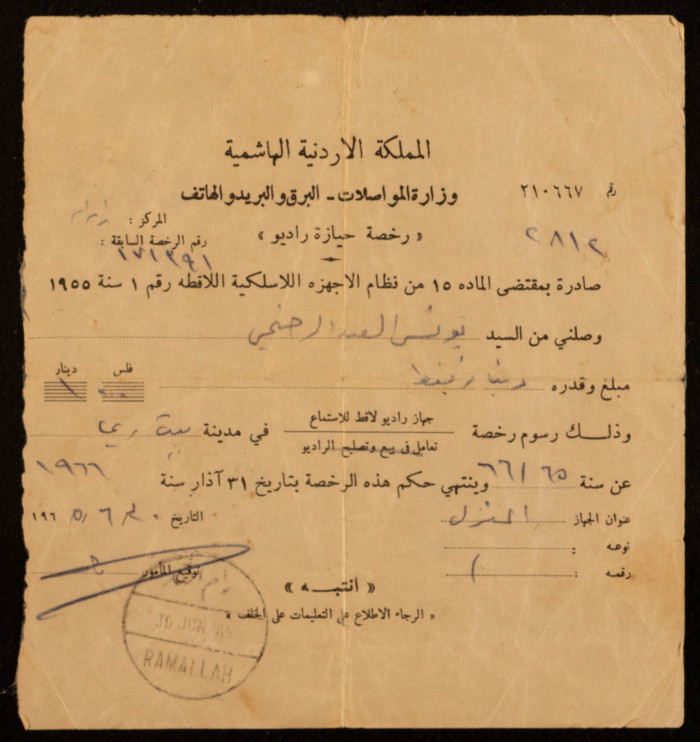 المملكة الاردنية الهاشمية
وزارة المواصلات - البرق والبريد والهاتف
رقم ٢١٠٦٦٧
المركز :
« رخصة حيازة راديو »
٢٨١٢
رقم الرخصة السابقة :
١٧١٣٩١
صادرة بمقتضى الماده ١٥ من نظام الاجهزه اللاسلكية اللاقطه رقم ١ سنة ١٩٥٥
وصلني من السيد يونس العبد
فلس دينار
مبلغ وقدره دينار فقط ١
جهاز راديو لاقط للاستماع
وذلك رسوم رخصة في مدينة بيت ريما
تعامل في بيع وتصليح الراديو
عن سنة ٦٥/٦٦ وينتهي حكم هذه الرخصة بتاريخ ٣١ آذار سنة ١٩٦٦
عنوان الجهاز المنزل
التاريخ ٣٠/٦/١٩٦٥
نوعه :
رقمه :
توقيع المأمور
« انتبه »
« الرجاء الاطلاع على التعليمات على الخلف »
رام الله
30 JUN 65
RAMALLAH